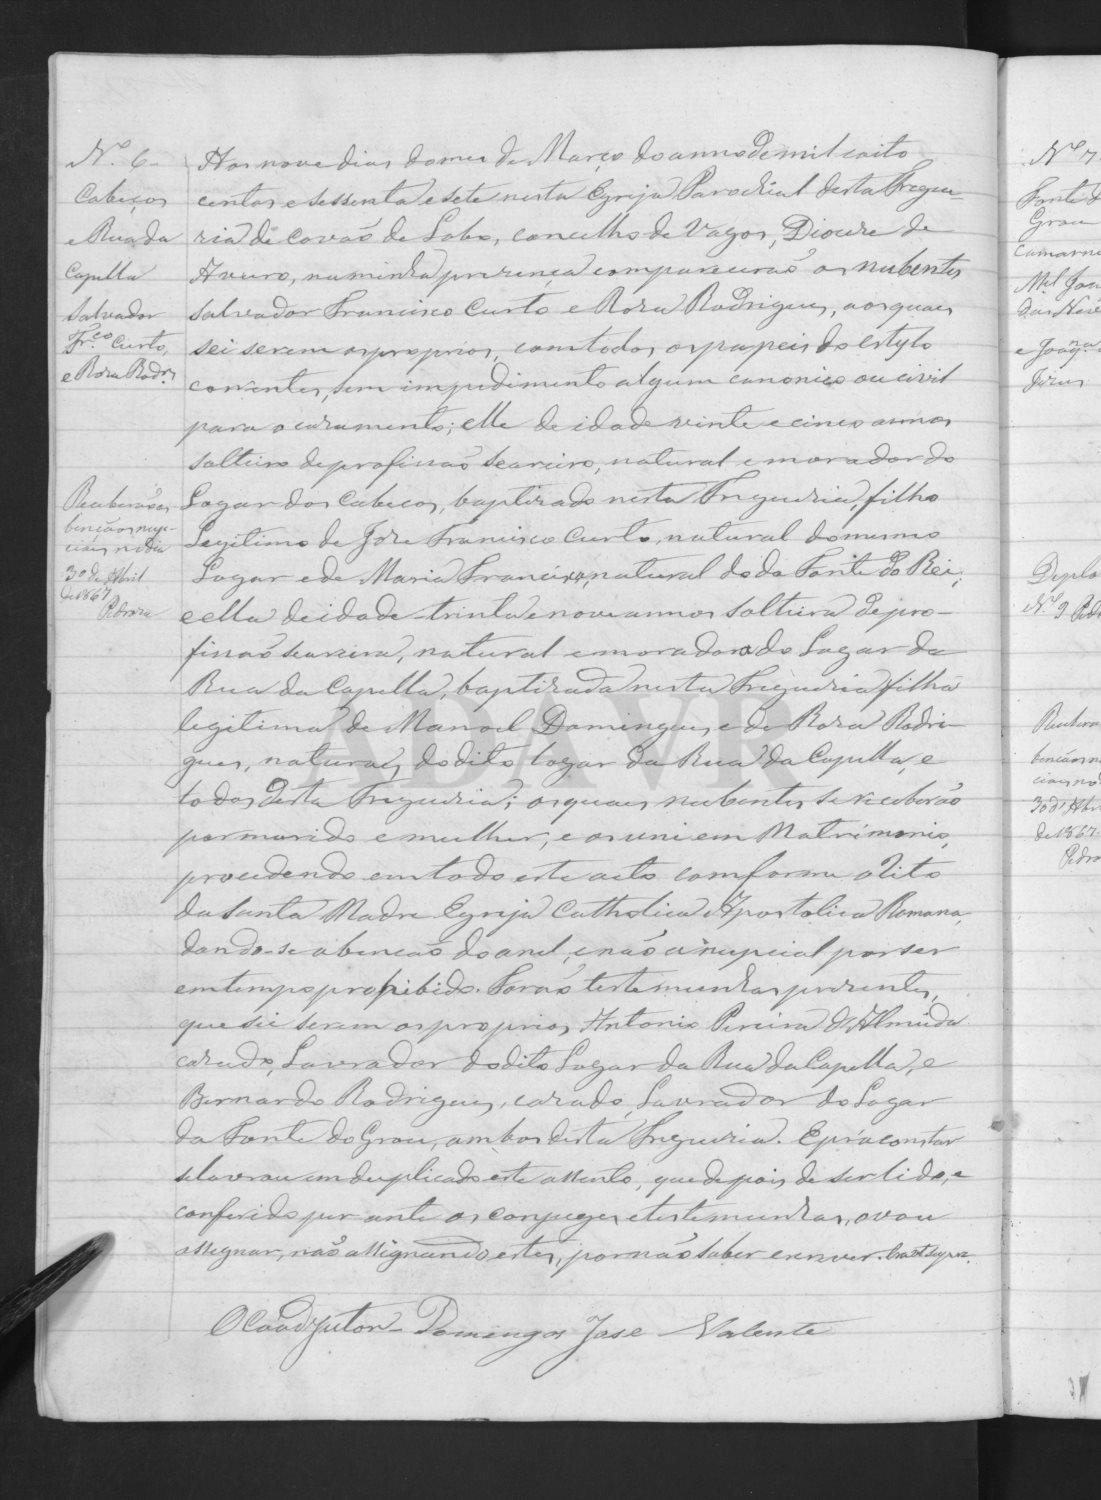 N.º 6-
Cabeços
e Rua da
Capella
Salvador
Fr.co Curto,
e Roza Rodr.s
Receberão as
bençãos nup-
ciais no dia
30 de Abril
de 1867
Pedroza
Aos nove dias do mes de Março do anno de mil oito
centos e sessenta e sete nesta Egreja Parochial desta Fregue-
ria de Covão de Lobo, concelho de Vagos, Diocese de
Aveiro, na minha prezença comparecerão os nubentes
Salvador Francisco Curto e Roza Rodrigues, aos quaes
sei serem os proprios, com todos os papeis do estylo
correntes, sem impedimento algum canonico ou civil
para o cazamento; elle de idade vinte e cinco annos
solteiro de profissão seareiro, natural e morador do
Lugar dos Cabeços, baptizado nesta Freguezia, filho
Legitimo de Joze Francisco Curto, natural do mesmo
Lugar e de Maria Francisca, natural do da Fonte do Rei;
e ella de idade trinta e nove annos solteira de pro-
fissão seareira, natural e moradora do Lugar da
Rua da Capella, baptizada nesta Freguezia, filha
legitima de Manoel Domingues e de Roza Rodri-
gues, naturaes do dito lugar da Rua da Capella, e
todos desta Freguezia; os quaes nubentes se receberão
por marido e mulher, e os uni em Matrimonio,
procedendo em todo este acto comforme o Rito
da Santa Madre Egreja Catholica Apostolica Romana,
dando-se a benção do anel, e não a nupcial por ser
em tempo prohibido. Forão testemunhas prezentes,
que sei serem os proprios Antonio Pereira d'Almeida
cazado, Lavrador do dito Lugar da Rua da Capella, e
Bernardo Rodrigues, cazado, Lavrador do Lugar
da Fonte do Grou, ambos desta Freguezia. E p.a constar
se lavrou em duplicado este assento, que depois de ser lido, e
conferido perante os conjuges e testemunhas, o vou
assignar, não assignando estes, por não saber escrever. Era ut supra.
O Coadjutor - Domingos Jose Valente
ADAVR
N.º 7
Fonte d
Grou
M.el Joa
das Neve
e Joaq.na
Jezus
N.º 9 Pedr
30 d'Abr
de 1867
Pedro